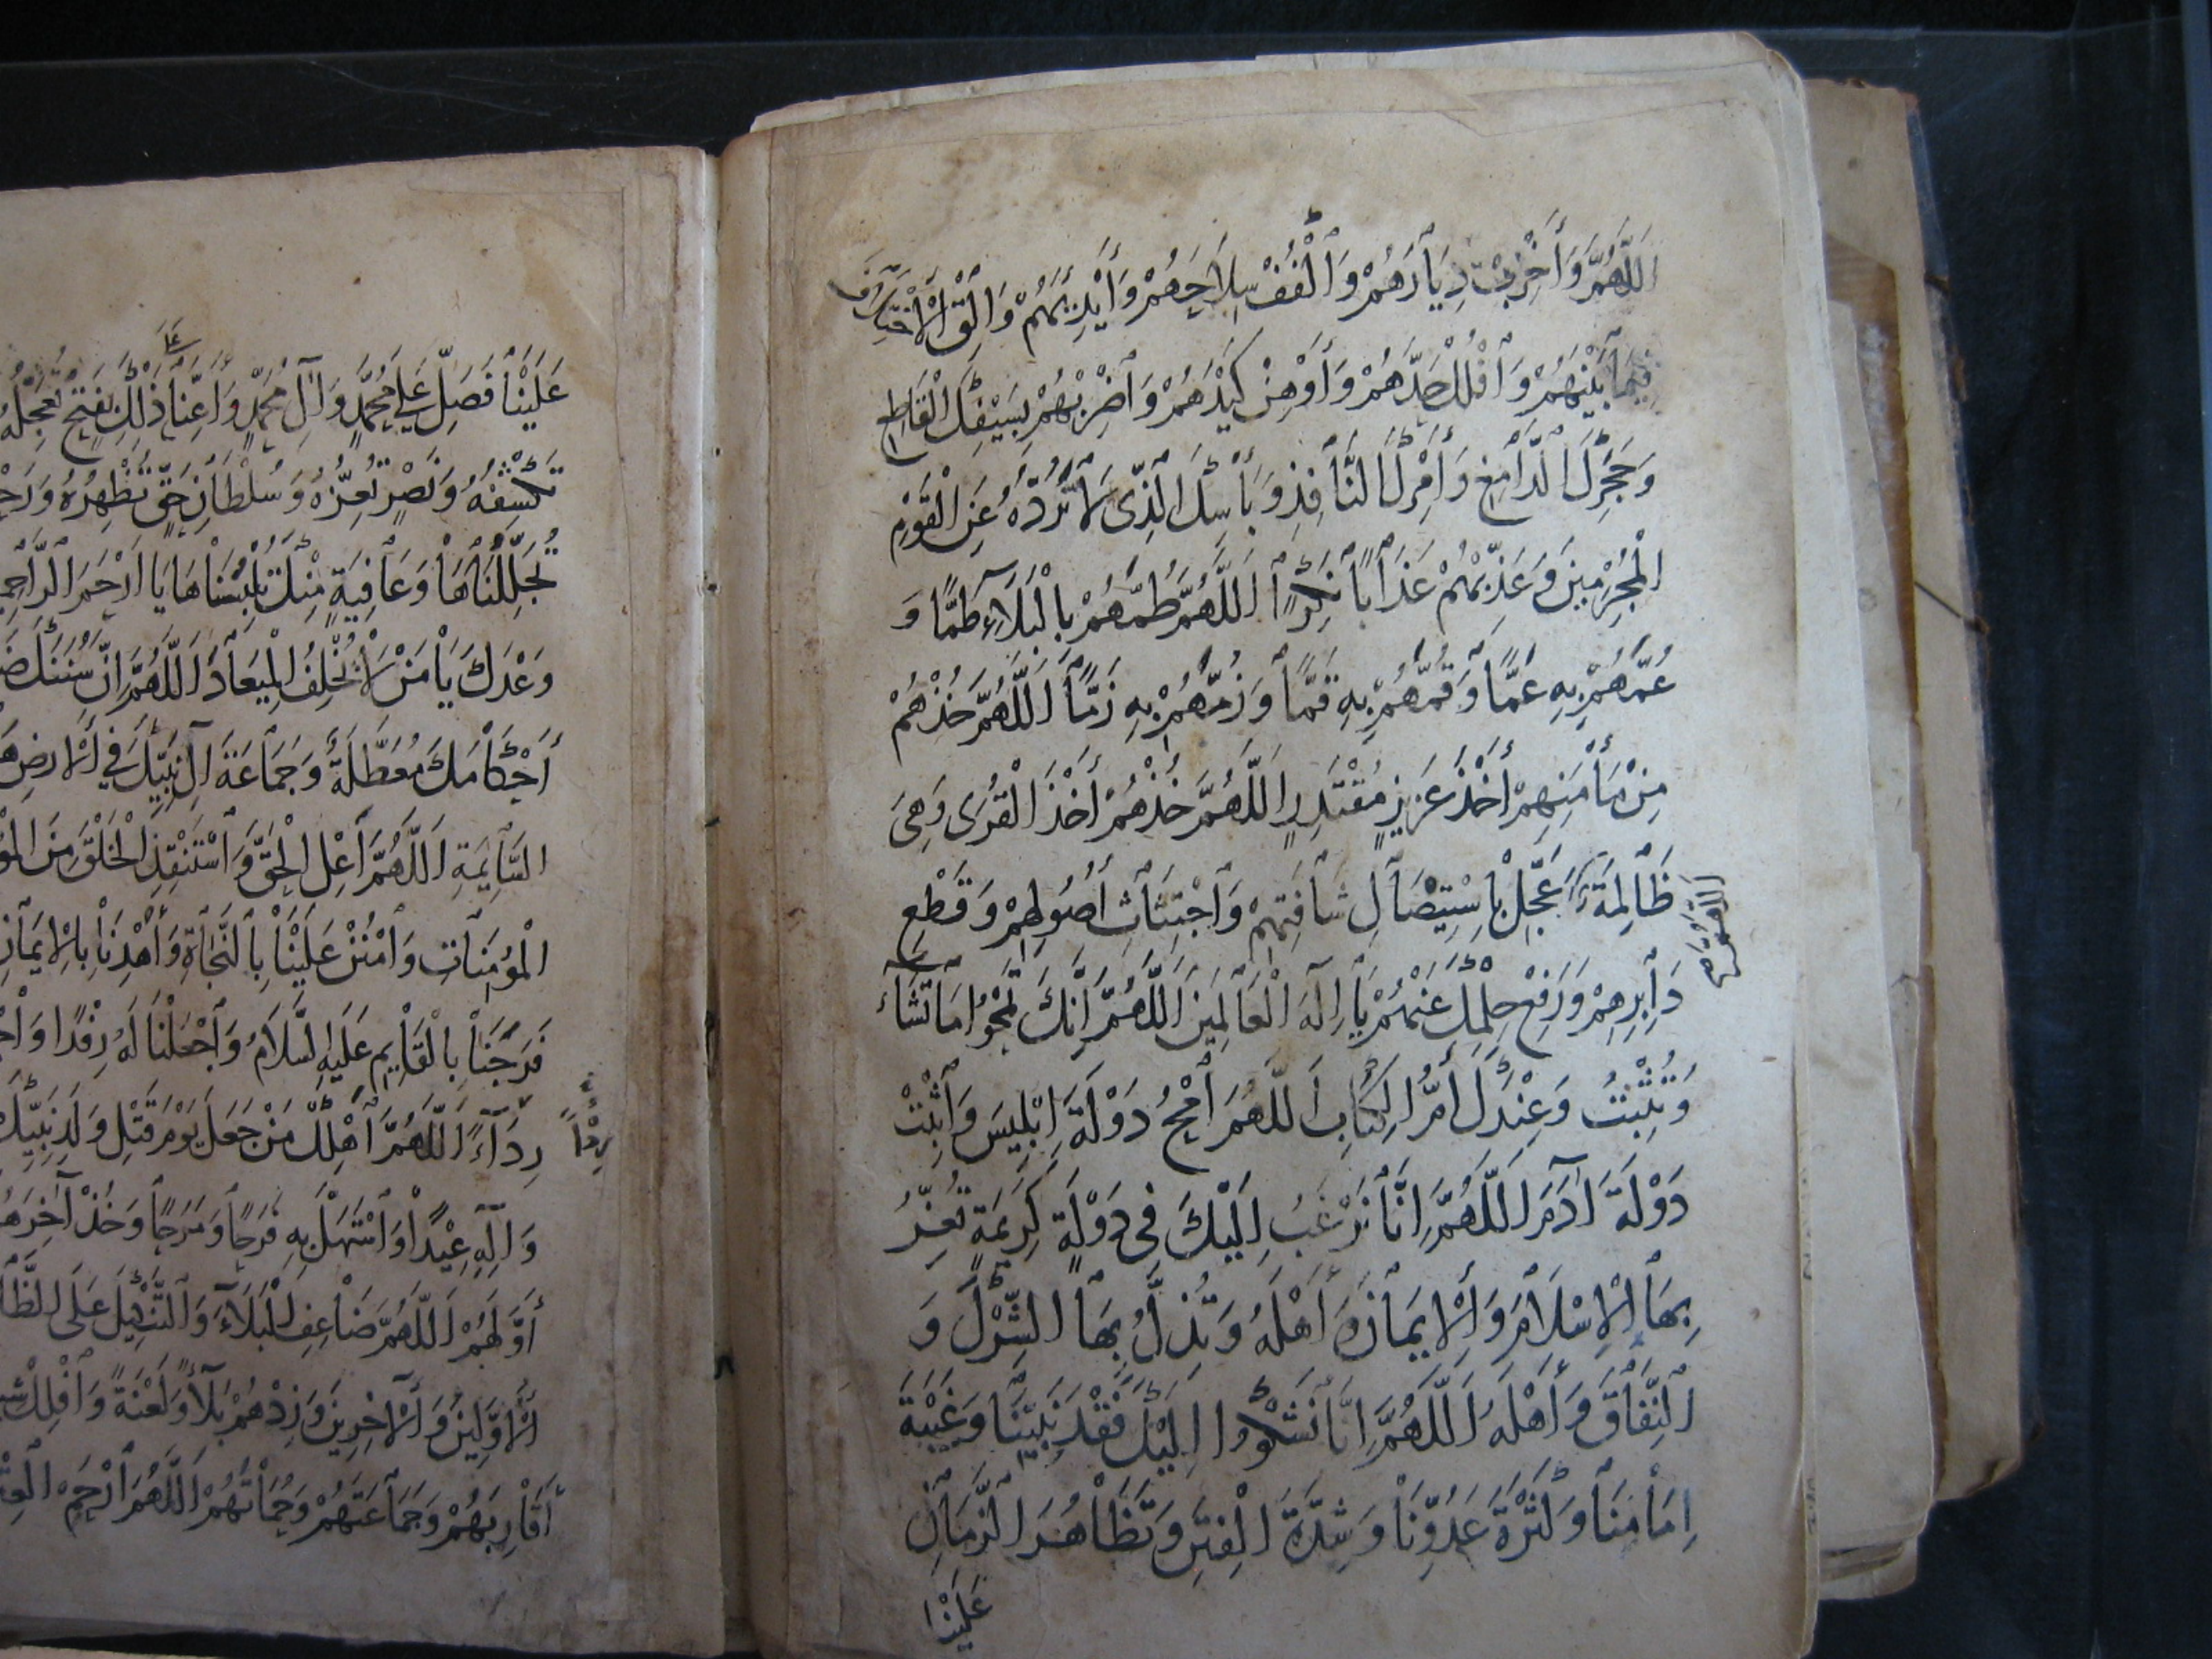 اَللّٰهُمَّ وَأَخْرِبْ دِيَارَهُمْ وَاكْفُفْ سِلَاحَهُمْ وَأَيْدِيَهُمْ وَأَلْقِ الْاِخْتِلَافَ
فِيمَا بَيْنَهُمْ وَافْلُلْ حَدَّهُمْ وَأَوْهِنْ كَيْدَهُمْ وَاضْرِبْهُمْ بِسَيْفِكَ الْقَاطِعِ
وَحَجَرِكَ الدَّامِغِ وَأَمْرِكَ النَّافِذِ وَبَأْسِكَ الَّذِي لَا تَرُدُّهُ عَنِ الْقَوْمِ
الْمُجْرِمِينَ وَعَذِّبْهُمْ عَذَابًا نُكْرًا اَللّٰهُمَّ طُمَّهُمْ بِالْبَلَاءِ طَمًّا وَ
عُمَّهُمْ بِهِ عَمًّا وَقُمَّهُمْ بِهِ قَمًّا وَزُمَّهُمْ بِهِ زَمًّا اَللّٰهُمَّ خُذْهُمْ
مِنْ مَأْمَنِهِمْ أَخْذَ عَزِيزٍ مُقْتَدِرٍ اَللّٰهُمَّ خُذْهُمْ أَخْذَ الْقُرٰى وَهِيَ
ظَالِمَةٌ عَجِّلْ بِاسْتِيصَالِ شَأْفَتِهِمْ وَاجْتِثَاثِ أُصُولِهِمْ وَقَطْعِ
دَابِرِهِمْ وَرَفْعِ حِلْمِكَ عَنْهُمْ يَا إِلٰهَ الْعَالَمِينَ اَللّٰهُمَّ إِنَّكَ تَمْحُوا مَا تَشَاءُ
وَتُثْبِتُ وَعِنْدَكَ أُمُّ الْكِتَابِ اَللّٰهُمَّ امْحُ دَوْلَةَ إِبْلِيسَ وَاثْبِتْ
دَوْلَةَ آدَمَ اَللّٰهُمَّ إِنَّا نَرْغَبُ إِلَيْكَ فِي دَوْلَةٍ كَرِيمَةٍ تُعِزُّ
بِهَا الْإِسْلَامَ وَالْإِيمَانَ وَأَهْلَهُ وَتُذِلُّ بِهَا الشِّرْكَ وَ
النِّفَاقَ وَأَهْلَهُ اَللّٰهُمَّ إِنَّا نَشْكُوا إِلَيْكَ فَقْدَ نَبِيِّنَا وَغَيْبَةَ
إِمَامِنَا وَكَثْرَةَ عَدُوِّنَا وَشِدَّةَ الْفِتَنِ وَتَظَاهُرَ الزَّمَانِ
عَلَيْنَا
عَلَيْنَا فَصَلِّ عَلٰى مُحَمَّدٍ وَآلِ مُحَمَّدٍ وَأَعِنَّا ذٰلِكَ بِفَتْحٍ تُعَجِّلُهُ
عَلٰى
تَكْشِفُهُ وَنَصْرٍ تُعِزُّهُ وَسُلْطَانِ حَقٍّ تُظْهِرُهُ
تُجَلِّلُنَاهَا وَعَافِيَةٍ مِنْكَ تُلْبِسُنَاهَا يَا أَرْحَمَ
وَعْدَكَ يَا مَنْ لَا يُخْلِفُ الْمِيعَادَ اَللّٰهُمَّ إِنَّ سُنَنَكَ
أَحْكَامَكَ مُعَطَّلَةٌ وَجَمَاعَةَ آلِ نَبِيِّكَ فِي الْأَرْضِ
السَّائِمَةِ اَللّٰهُمَّ أَعْلِ الْحَقَّ وَاسْتَنْقِذِ الْخَلْقَ مِنَ
الْمُؤْمِنَاتِ وَامْنُنْ عَلَيْنَا بِالنَّجَاةِ وَاهْدِنَا بِالْإِيمَانِ
فَرَجَنَا بِالْقَائِمِ عَلَيْهِ السَّلَامُ وَاجْعَلْنَا لَهُ رِفْدًا
رِدَاءً اَللّٰهُمَّ أَهْلِكْ مَنْ جَعَلَ يَوْمَ قَتْلِ وَلَدِ نَبِيِّكَ
وَآلِهِ عِيدًا وَاسْتَهَلَّ بِهِ فَرَحًا وَمَرَحًا وَخُذْ آخِرَهُمْ
أَوَّلَهُمْ اَللّٰهُمَّ ضَاعِفِ الْبَلَاءَ وَالتَّنْكِيلَ عَلَى
الْأَوَّلِينَ وَالْآخِرِينَ وَزِدْهُمْ بَلَاءً وَلَعْنَةً وَأَهْلِكْ
أَقَارِبَهُمْ وَجَمَاعَتَهُمْ وَحُمَاتَهُمْ اَللّٰهُمَّ ارْحَمِ